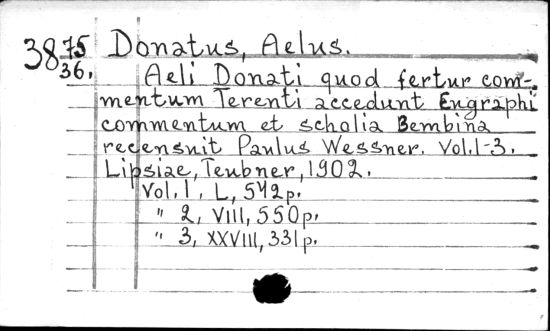 38 75/36. Donatus, Aelus.
Aeli Donati quod fertur com-
mentum Terenti accedunt Engraphi
commentum et scholia Bembina
recensuit Paulus Wessner. Vol.1-3.
Lipsiae, Teubner, 1902.
Vol.1, L, 542p.
" 2, VIII, 550p.
" 3, XXVIII, 331p.